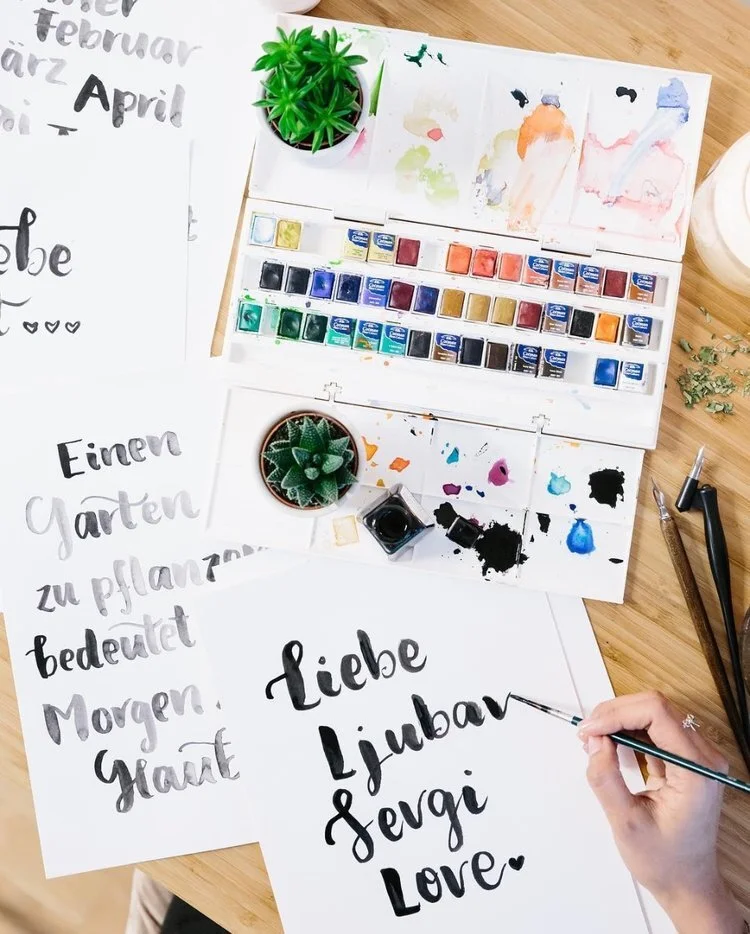 Februar
März
April
Liebe
Einen
Garten
zu pflanzen
bedeutet
Morgen
Glaut
Liebe
Ljubav
Sevgi
Love